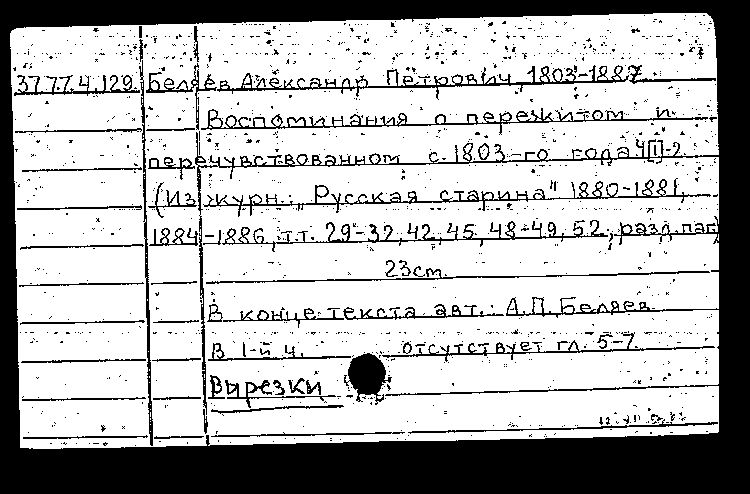 37.77.4.129. Беляев, Александр Петрович, 1803-1887.
Воспоминания о пережитом и
перечувствованном с 1803-го года Ч[I]-2
(Из журн.: „Русская старина" 1880-1881,
1884-1886, т.т. 29-32, 42, 45, 48-49, 52, разд. паг)
23cm.
В конце текста авт.: А.П. Беляев
В 1-й ч. отсутствует гл. 5-7.
Вырезки